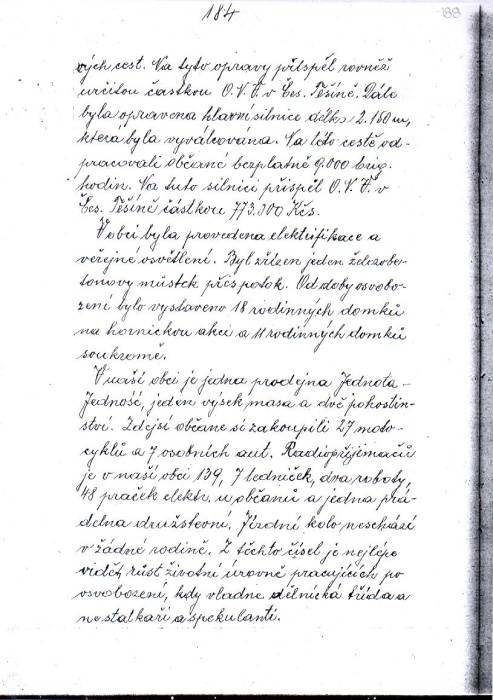 184
188
ových cest. Na tyto opravy přispěl rovněž
určitou částkou O.V.F. v Čes. Těšíně. Dále
byla opravena hlavní silnice délka 2.150 m,
která byla vyválcována. Na této cestě od-
pracovali občané bezplatně 9.000 brig.
hodin. Na tuto silnici přispěl O.V.F. v
Čes. Těšíně částkou 773.000 Kčs.
V obci byla provedena elektrifikace a
veřejné osvětlení. Byl zřízen jeden železobe-
tonový můstek přes potok. Od doby osvobo-
zení bylo vystaveno 18 rodinných domků
na hornickou akci a 11 rodinných domků
soukromě.
V naší obci je jedna prodejna Jednota-
Jedność, jeden výsek masa a dvě pohostin-
ství. Zdejší občané si zakoupili 27 moto-
cyklů a 7 osobních aut. Radiopřijimačů
je v naší obci 139, 7 ledniček, dva roboty,
48 praček elektr. u občanů a jedna prá-
delna družstevní. Jízdní kolo neschází
v žádné rodině. Z těchto čísel je nejlépe
vidět, růst životní úrovně pracujících po
osvobození, kdy vladne dělnická třída a
ne statkaři a spekulanti.